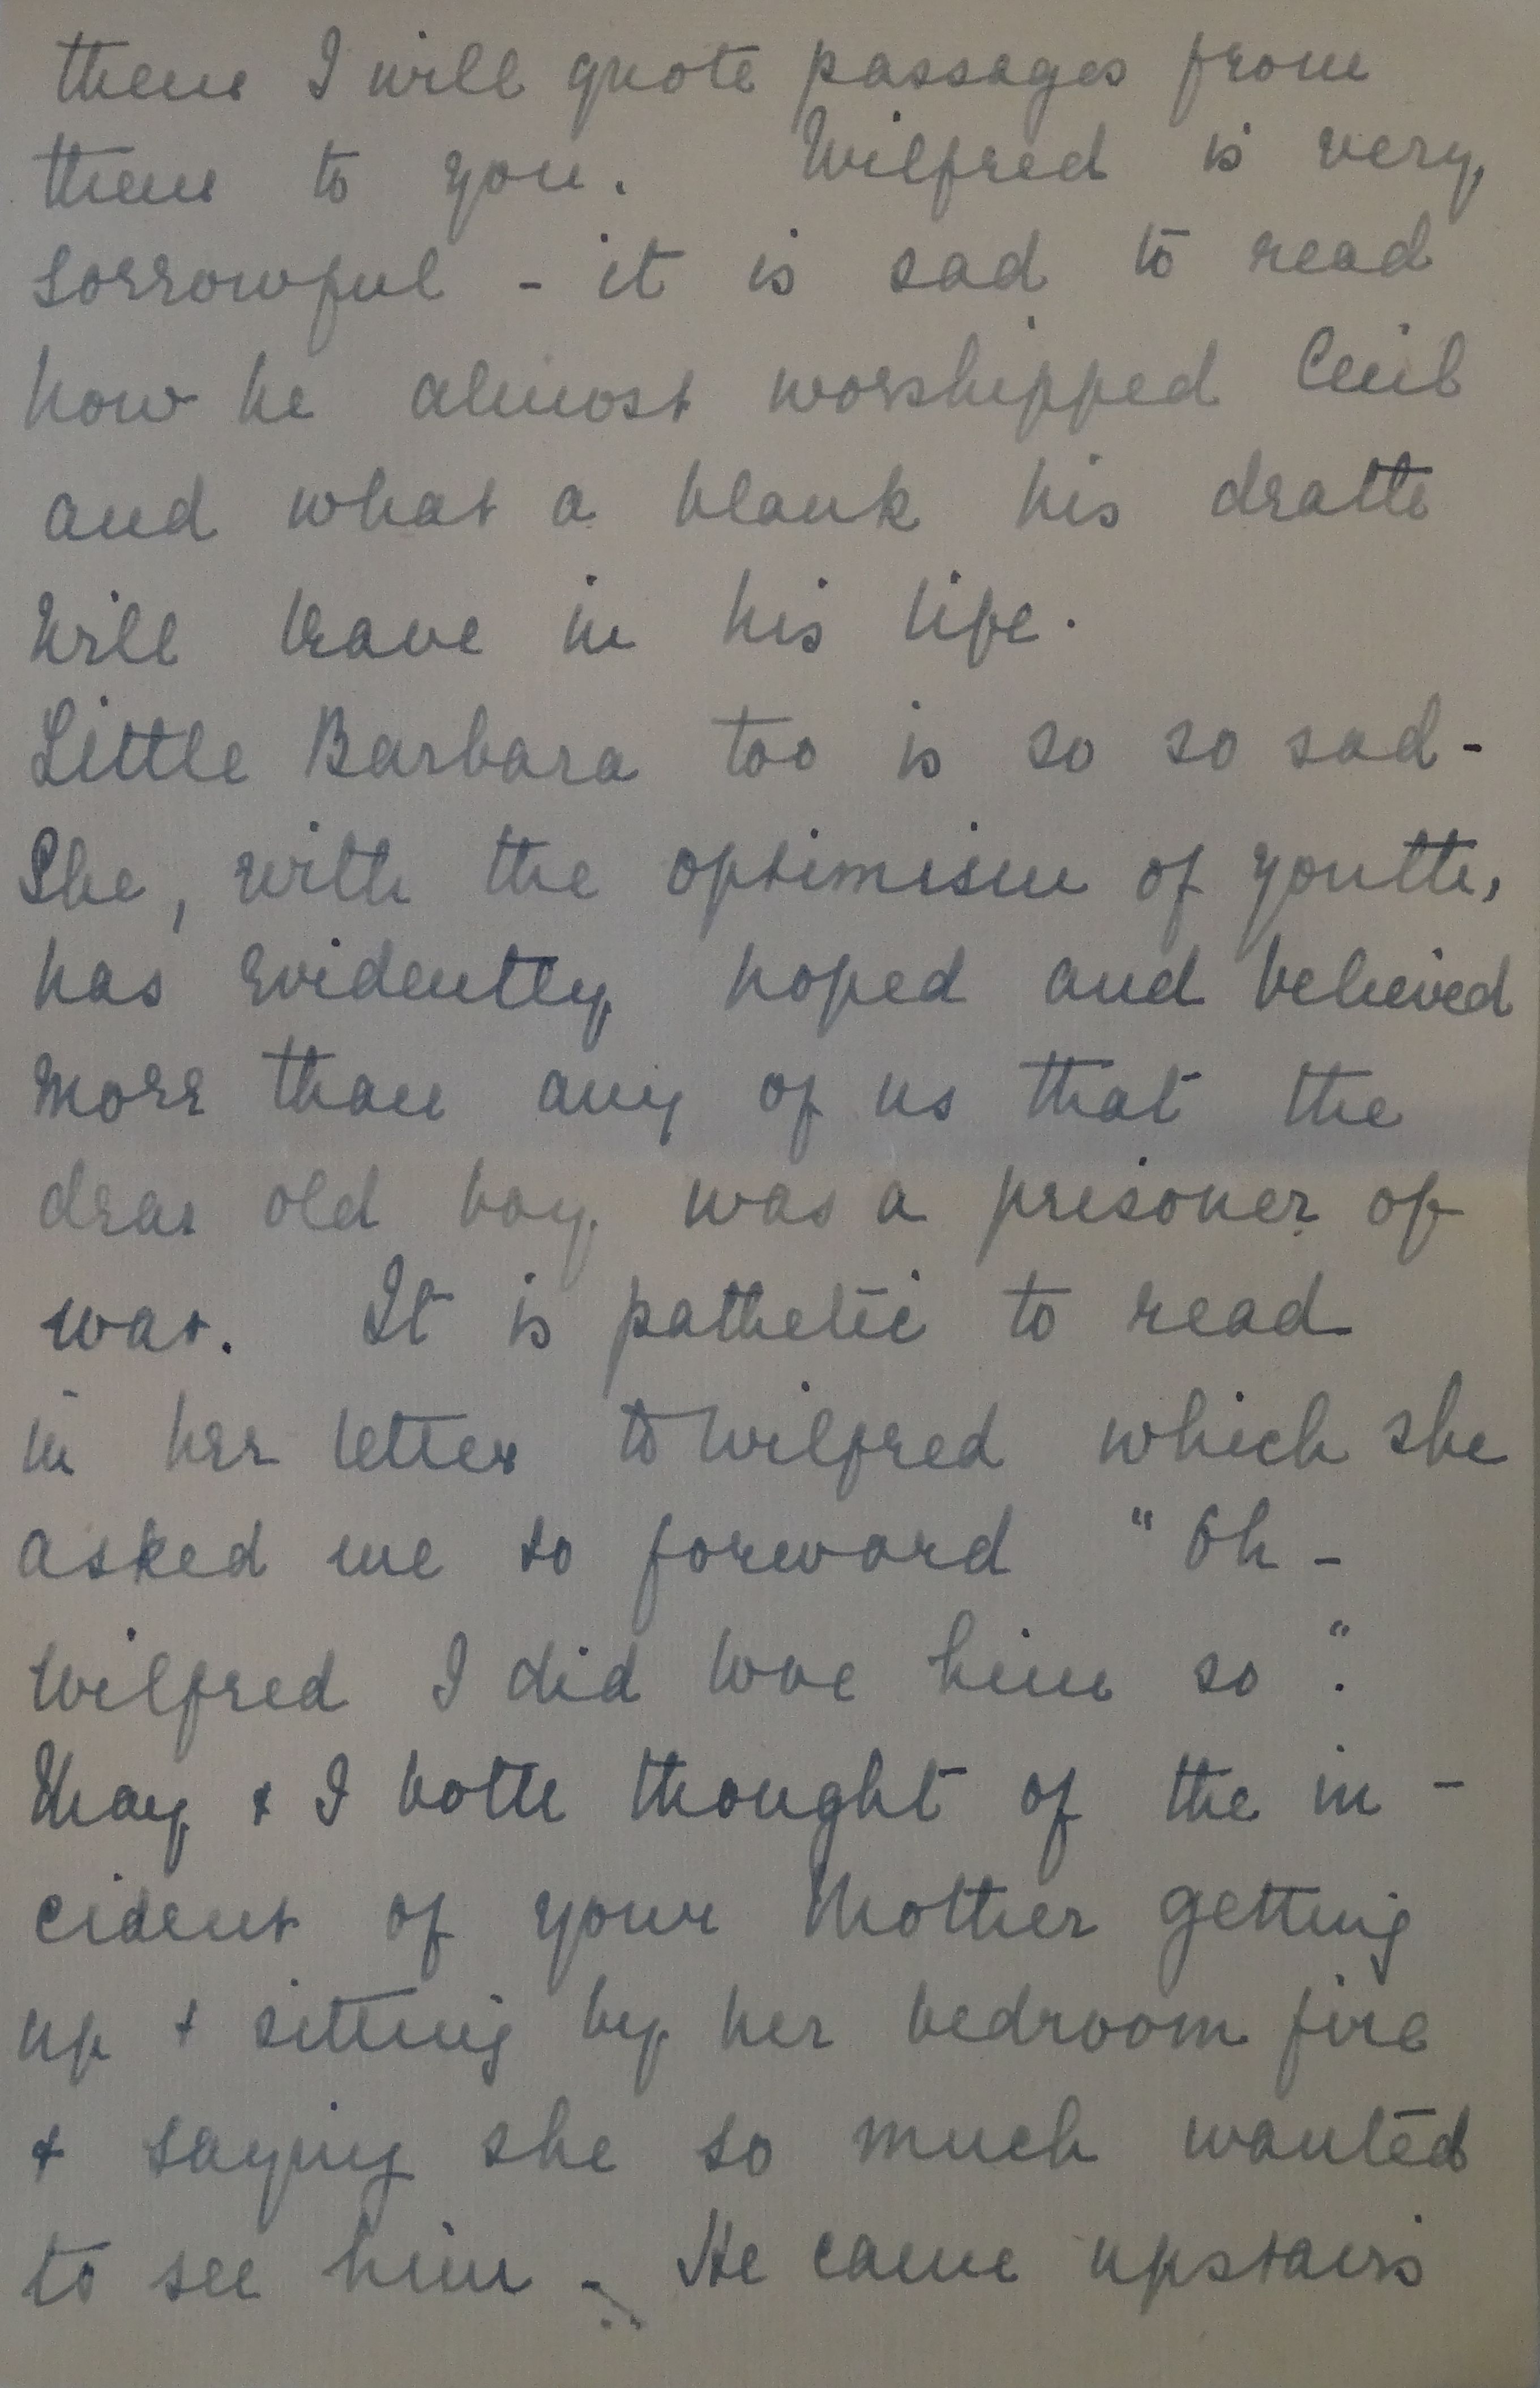 them I will quote passages from
them to you. Wilfred is very
sorrowful - it is sad to read
how he almost worshipped Cecil
and what a blank his death
will leave in his life.
Little Barbara too is so so sad -
She, with the optimism of youth,
has evidently hoped and believed
more than any of us that the
dear old boy was a prisoner of
war. It is pathetic to read
in her letter to Wilfred which she
asked me to forward "Oh -
Wilfred I did love him so".
May & I both thought of the in -
cident of your Mother getting
up & sitting by her bedroom fire
& saying she so much wanted
to see him - He came upstairs